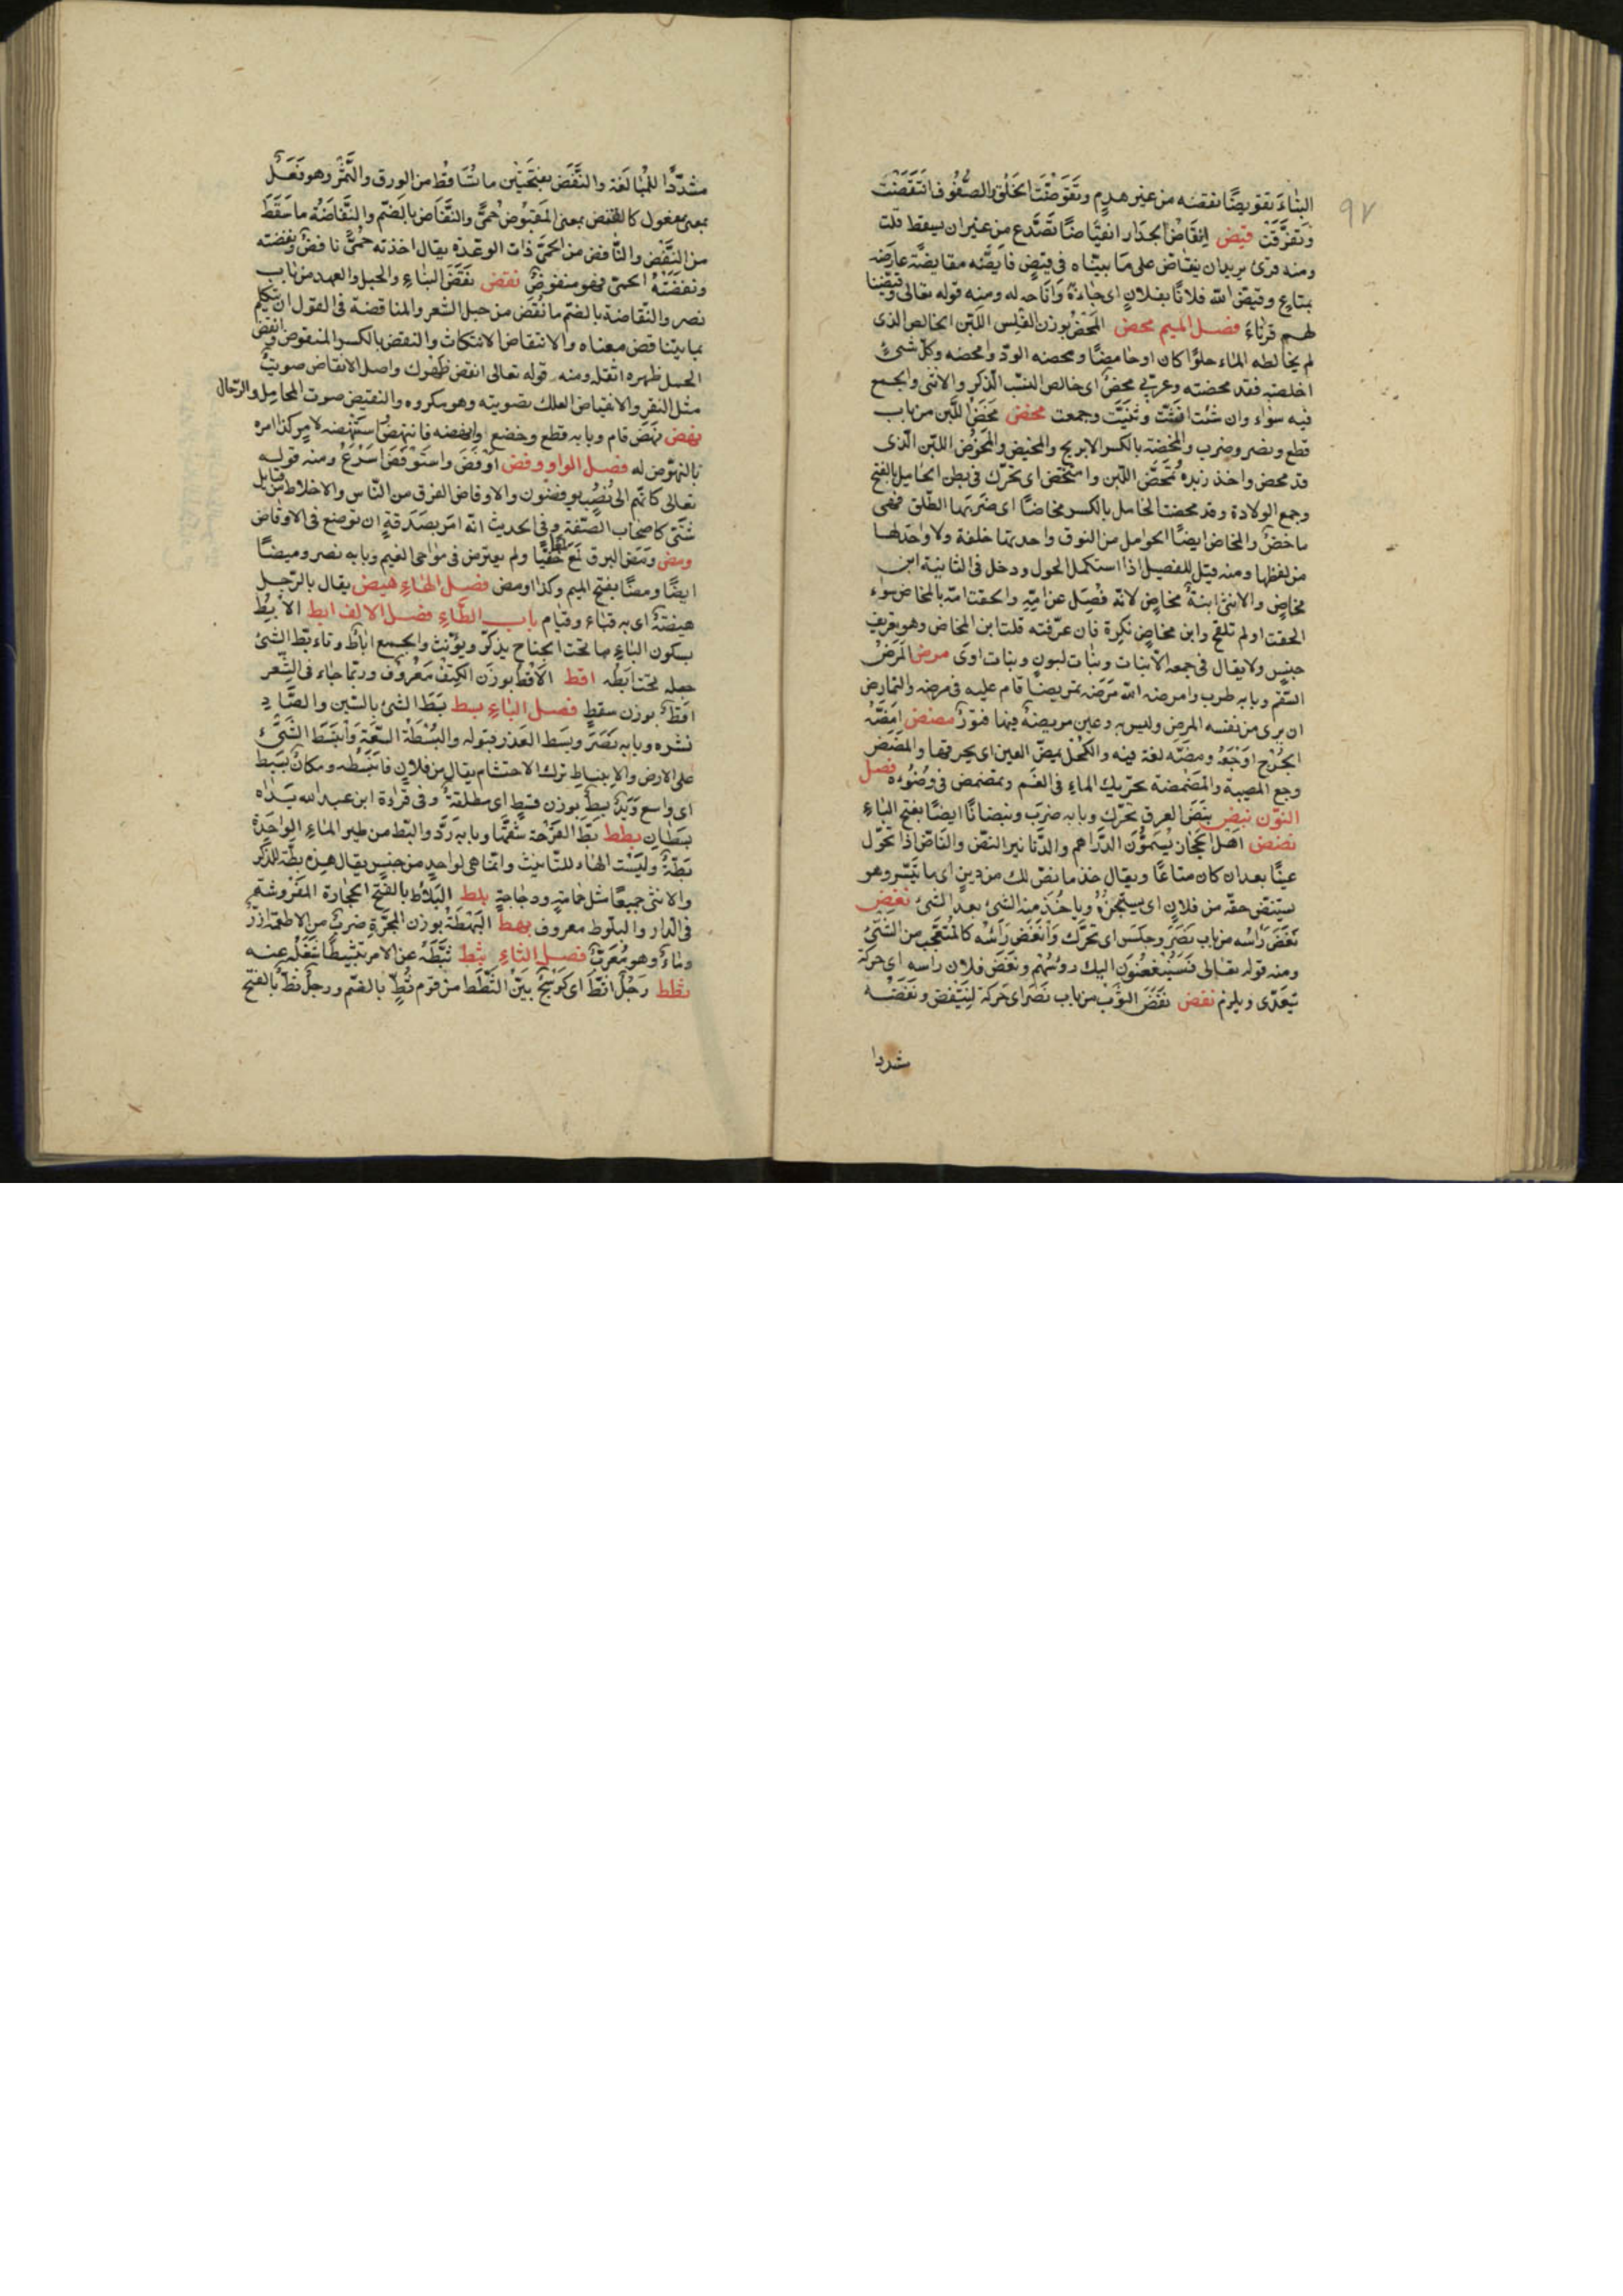 ٩٧
البناءَ تقويضًا نقضه من غير هدمٍ وتَقَوَّضَتِ الحَلَق والصُّفُوف انتَقَضَت
وتفرَّقت قيض اِنقَاضَ الجدار انقيَاضًا تَصَدَّع من غير ان يسقط قلت
ومنه قرئ يريد ان ينقاض على ما بيّناه فى قيض قايَضَه مقايضَةً عارَضَه
بمتاعٍ وقيّض الله فلانًا بفلانٍ اى جاءَهُ واتَاحه له ومنه قوله تعالى وقيّضنا
لهم قرناءَ فصل الميم محض المَحْضُ بوزن الفَلِس اللبن الخالص الذى
لم يخالطه الماء حلوًا كان او حامضًا ومحضه الودّ وامحضه وكلّ شئٍ
اخلصته فقد محضته وعربىٌ محضٌ اى خالص النسب الذكر والانثى والجمع
فيه سواء وان شئت انّثت وثنّيت وجمعت مخض مَخَضَ اللَّبن من باب
قطع ونصر وضرب والمِخضَة بالكسر الابريج والمخيض والمخوض اللبن الّذى
قد مخض واخذ زبده وتمخّض اللّبن وامتخض اى تحرّك فى بطن الحامل بالفتح
وجع الولادة وقد مخضت الحامل بالكسر مخاضًا اى ضربَها الطّلق فهى
ماخضٌ والمخاض ايضًا الحوامل من النوق واحدتها خلفة ولا واحد لها
من لفظها ومنه قيل للفصيل اذا استكمل الحول ودخل فى الثانية ابن
مخاضٍ والانثى ابنةُ مخاضٍ لانّه فُصِلَ عن امّه والحقت امّه بالمخاض سواء
لحقت او لم تلقح وابن مخاضٍ نكرة فان عرّفته قلت ابن المخاض وهو تعريف
جنسٍ ولا يقال فى جمعه الّا بنات وبنات لبونٍ وبنات اوَى مرض المَرَضُ
السّقم وبابه طرب وامرضه الله مَرَّضَه تمريضًا قام عليه فى مرضه والتّمارض
ان يرى من نفسه المرض وليس به وعين مريضةٌ فيها فتورٌ مضض امَضَّهُ
الجُرْح اوجَعَهُ ومضّه لغة فيه والكُحْل يمضّ العين اى يحرقها والمَضَض
وجع المصيبة والمَضْمَضَة تحريك الماء فى الفَم وتمضمض فى وضُوءِه فصل
النوّن نبض نَبَضَ العرق تحرّك وبابه ضرَبَ ونبضانًا ايضًا بفتح الباءِ
نضض اهل الحجاز يُسَمُّون الدَّراهم والدَّنانير النضّ والنّاضّ اذا تحوّل
عينًا بعد ان كان متاعًا ويقال خذ ما نضّ لك من دينٍ اى ما تَيَسَّر وهو
يستنضّ حقّه من فلانٍ اى يستنجزُهُ وياخُذ منه الشئ بعد الشئ نغض
نَغَضَ رَأسُه من باب نَصَرَ وجلَس اى تحرّك وَأنغَضَ رَأسَه كالمُتعجّب من الشئ
ومنه قوله تعالى فَسَيُنغِضُونَ اليك رءُسَهُم ونَغَضَ فلان راسه اى حركة
يتعدّى ويلزم نفض نَفَضَ الثّوب من باب نَصَرَ اى حَرّكه لِيَنْتَفِضَ ونَفّضَهُ
شددا
مشدّدًا للمُبالَغة والنَّفَض بفتحَتَيْن ما تساقط من الورق والثَّمَر وهو فَعَلٌ
بمعنى مفعول كالقَبَض بمعنى المَقبُوض والنُّفَاض بالضّم والنُّفَاضَةُ ما سَقَطَ
من النَّفْض والنّافض من الحُمَّى ذات الرعدة يقال اخذته حُمَّى نافضٌ ونفضَتْه
ونفَضَتْهُ الحمّى فهو منفوضٌ نقض نَقَضَ البناءِ والحبل والعهد من باب
نصر والنّقاضة بالضم ما نُقِضَ من حبل الشعر والمناقضة فى القول ان يتكلّم
بما يتناقض معناه والانتقاض الانتكاث والنقض بالكسر المنقوض وانقض
الحمل ظهره اثقله ومنه قوله تعالى انقض ظَهْرك واصل الانقاض صويتٌ
مثل النقر والانقياض العلك تصويته وهو مكروه والنقيض صوت المحامل والرّحال
نهض نَهَضَ قام وبابه قطع وخضع وانهضه فانتهض واستَنْهَضَه لامرٍ كذا امره
بالنهوض له فصل الواو وفض اوْفَضَ واستَوْفَضَ اسْرَعَ ومنه قوله
تعالى كانّهم الى نُصُبٍ يوفضون والاوفاض الفرق من النّاس والاخلاط من قبايل
شَتّى كاصحاب الصّفة وفى الحديث انّه امَر بصَدَقةٍ ان توضع فى الاوفاض
ومض ومَضَ البرق لَمَعَ لمعًا خفيًّا ولم يعترض فى نواحى الغيم وبابه نصر وميضًا
ايضًا ومضًا بفتح الميم وكذا اومض فصل الهاءِ هيض يقال بالرّجل
هيضَةٌ اى به قياءٌ وقيام باب الطّاءِ فصل الالف ابط الابْطُ
بسكون الباءِ ما تحت الجناح يذكّر ويؤنث والجمع اباطٌ وتابّط الشئ
جعله تحت ابَطه اقط الأَقْط بوزن الكَتِف مَعْرُوف وربّما جاء فى الشِّعر
اقطٌ بوزن سقطٍ فصل الباءِ بسط بَسَطَ الشئ بالسّين والصّاد
نشره وبابه نَصَرَ وبسَط العذر قبوله والبَسْطَة السَّعَة وَانبَسَطَ الشَّئ
على الارض والانبساط ترك الاحتشام يقال من فلانٍ فانبَسَطه ومكان بَسيط
اى واسع وَيَدٌ بِسطٌ بوزن قسطٍ اى مطلقةٌ وفى قراءة ابن عبد الله يداه
بسطان بطط بَطَّ القرْحَة شقّها وبابه رَدَّ والبَطّ من طير الماءِ الواحدَة
بَطّةٌ ولَيْسَت الهاء للتّانيث وانّما هى لواحدٍ من جنسٍ يقال هذه بطّة للذّكر
والانثى جميعًا مثل حمامةٍ ودجاجةٍ بلط البَلَاط بالفتح الحجارة المَفْرُوشَة
فى الدار والبلّوط معروف بهط البَهَطَّة بوزن المَجَرَّةِ ضربٌ من الاطعمة ارزّ
وماءٌ وهو مُعَرَّبٌ فصل الثاءِ ثبط ثَبَّطَهُ عن الامر تثبيطًا شَغَلَهُ عنه
ثطط رَجُلٌ اثَطّ اى كَوْسَجٌ بَيِّنُ الثَّطَط من قومٍ ثُطٍّ بالضّم ورجل ثَطٌّ بالفتح